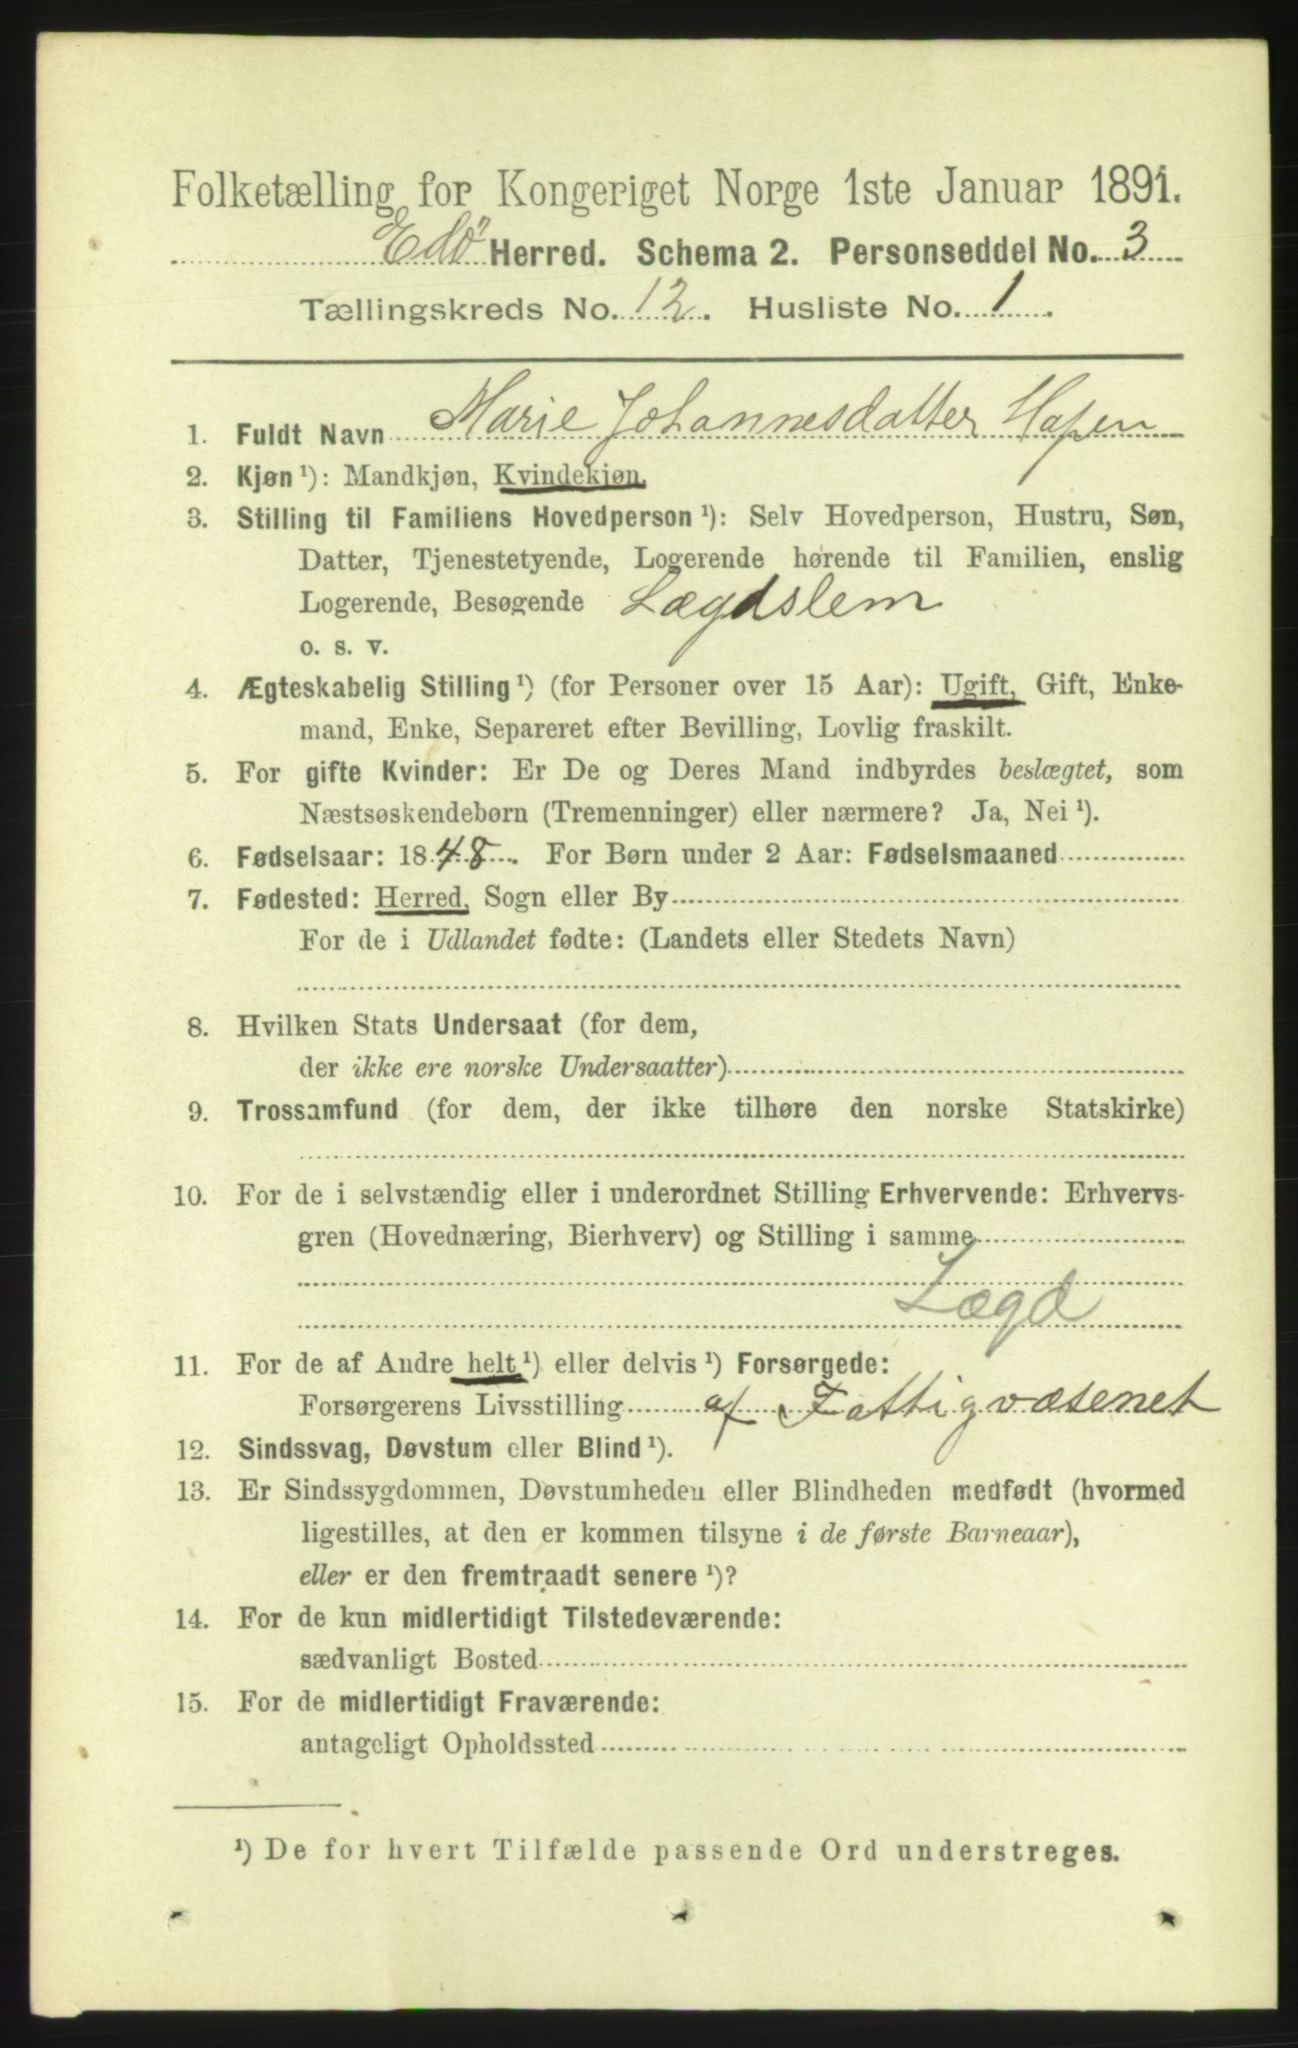 Folketælling for Kongeriget Norge 1ste Januar 1891.
Edø Herred. Schema 2. Personseddel No. 3
Tællingskreds No. 12. Husliste No. 1.
1. Fuldt Navn Marie Johannesdatter Hafsen
2. Kjøn ¹): Mandkjøn, Kvindekjøn.
3. Stilling til Familiens Hovedperson ¹): Selv Hovedperson, Hustru, Søn,
Datter, Tjenestetyende, Logerende hørende til Familien, enslig
Logerende, Besøgende Lægdslem
o. s. v.
4. Ægteskabelig Stilling ¹) (for Personer over 15 Aar): Ugift, Gift, Enke-
mand, Enke, Separeret efter Bevilling, Lovlig fraskilt.
5. For gifte Kvinder: Er De og Deres Mand indbyrdes beslægtet, som
Næstsøskendebørn (Tremenninger) eller nærmere? Ja, Nei ¹).
6. Fødselsaar: 1848. For Børn under 2 Aar: Fødselsmaaned
7. Fødested: Herred, Sogn eller By
For de i Udlandet fødte: (Landets eller Stedets Navn)
8. Hvilken Stats Undersaat (for dem,
der ikke ere norske Undersaatter)
9. Trossamfund (for dem, der ikke tilhøre den norske Statskirke)
10. For de i selvstændig eller i underordnet Stilling Erhvervende: Erhvervs-
gren (Hovednæring, Bierhverv) og Stilling i samme
Lægd
11. For de af Andre helt ¹) eller delvis ¹) Forsørgede:
Forsørgerens Livsstilling af Fattigvæsenet
12. Sindssvag, Døvstum eller Blind ¹).
13. Er Sindssygdommen, Døvstumheden eller Blindheden medfødt (hvormed
ligestilles, at den er kommen tilsyne i de første Barneaar),
eller er den fremtraadt senere ¹)?
14. For de kun midlertidigt Tilstedeværende:
sædvanligt Bosted
15. For de midlertidigt Fraværende:
antageligt Opholdssted
¹) De for hvert Tilfælde passende Ord understreges.